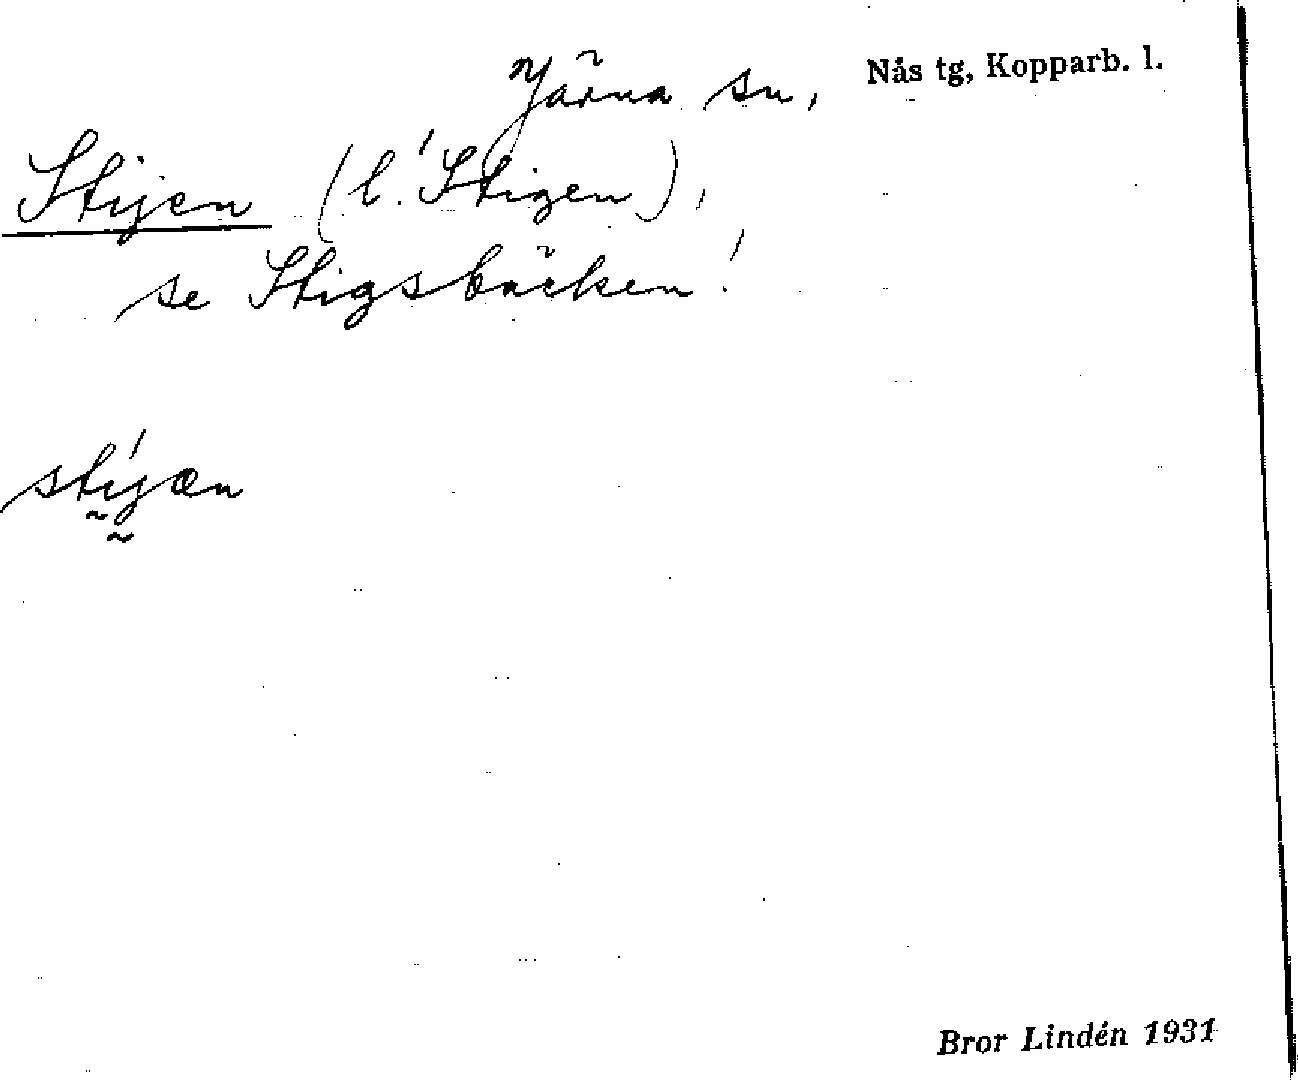 Järna sn, Nås tg, Kopparb. l.
Stijen (l. Stigen),
se Stigsbäcken!
stijæn
Bror Lindén 1931